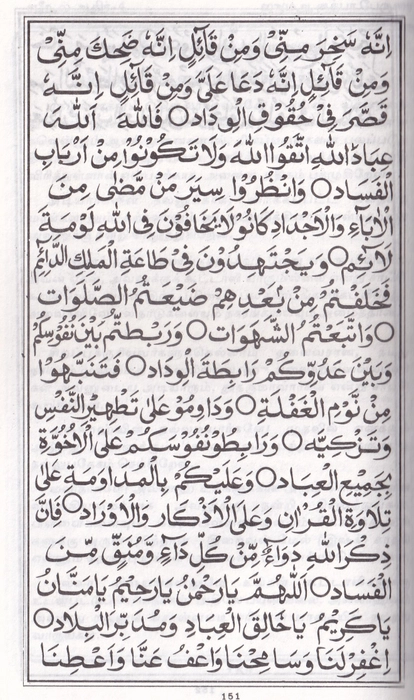 اِنَّهٗ سَخِرَ مِنِّىْ وَمِنْ قَآئِلٍ اِنَّهٗ ضَحِكَ مِنِّىْ
وَمِنْ قَآئِلٍ اِنَّهٗ دَعَا عَلَىَّ وَمِنْ قَآئِلٍ اِنَّهٗ
قَصَّرَ فِىْ حُقُوْقِ الْوِدَادِ○ فَاللهَ اَللهَ
عِبَادَ اللهِ اتَّقُوا اللهَ وَلَا تَكُوْنُوْا مِنْ اَرْبَابِ
الْفَسَادِ○ وَانْظُرُوْا سِيَرَ مَنْ مَّضٰى مِنَ
الْاٰبَاءِ وَالْاَجْدَادِ كَانُوْا لَا يَخَافُوْنَ فِى اللهِ لَوْمَةَ
لَآئِمٍ○ وَيَجْتَهِدُوْنَ فِىْ طَاعَةِ الْمَلِكِ الدَّآئِمِ
فَخَلَفْتُمْ مِنْ بَعْدِهِمْ ضَيَّعْتُمُ الصَّلَوَاتِ
○ وَاتَّبَعْتُمُ الشَّهَوَاتِ○ وَرَبَطْتُمْ بَيْنَ نُفُوْسِكُمْ
وَبَيْنَ عَدُوِّكُمْ رَابِطَةَ الْوِدَادِ○ فَتَنَبَّهُوْا
مِنْ نَوْمِ الْغَفْلَةِ○ وَدَاوِمُوْا عَلٰى تَطْهِيْرِ النَّفْسِ
وَتَزْكِيَّهِ○ وَرَابِطُوْا نُفُوْسَكُمْ عَلَى الْاُخُوَّةِ
بِجَمِيْعِ الْعِبَادِ○ وَعَلَيْكُمْ بِالْمُدَاوَمَةِ عَلٰى
تِلَاوَةِ الْقُرْاٰنِ وَعَلَى الْاَذْكَارِ وَالْاَوْرَادِ○ فَاِنَّ
ذِكْرَ اللهِ دَوَاءٌ مِّنْ كُلِّ دَاءٍ وَّمُنَقٍّ مِّنَ
الْفَسَادِ○ اَللّٰهُمَّ يَا رَحْمٰنُ يَا رَحِيْمُ يَا مَنَّانُ
يَا كَرِيْمُ يَا خَالِقَ الْعِبَادِ وَمُدَبِّرَ الْبِلَادِ○
اِغْفِرْ لَنَا وَسَامِحْنَا وَاعْفُ عَنَّا وَاَعْطِنَا
151